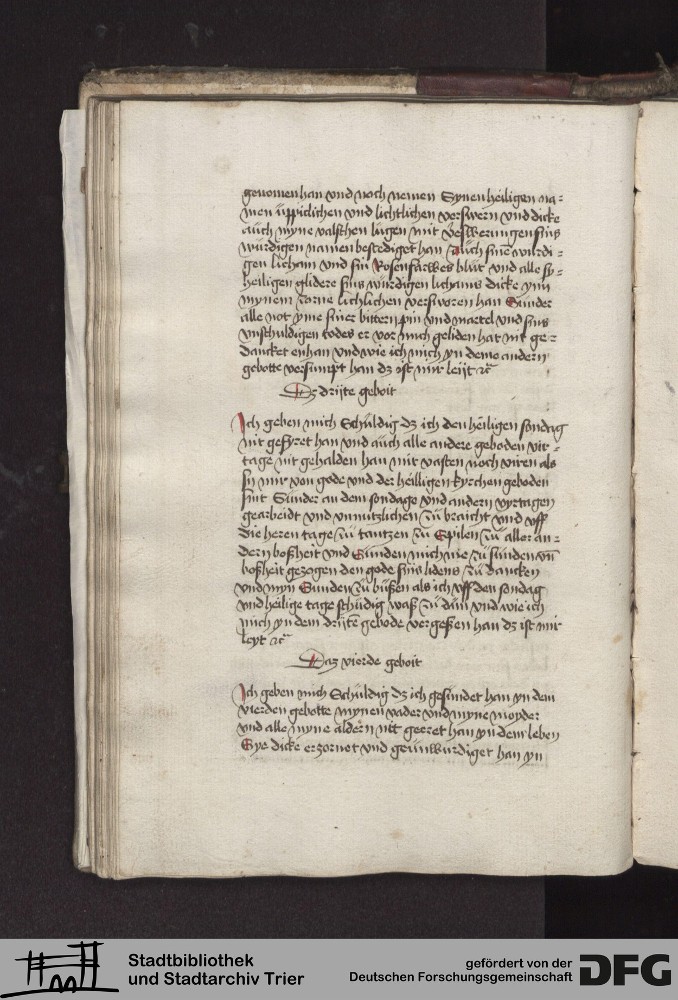 genomen han vnd noch nemen Synen heiligen na=
men üppiclichen vnd lichtlichen verswern vnd dicke
auch myne valschen lügen mit verswerungen sins
wurdigen namen bestediget han Auch sine wurdi=
gen licham vnd sin Rosenfarwes blut vnd alle sy=
heiligen glidere sins wurdigen lichams dicke ynn
mynem zorne lichlichen versworen han Sunder
alle not yme siner bittern pin vnd martel vnd sins
vnschuldigen todes er vor mich geliden hat nit ge=
dancket enhan vnd wie ich mich yn deme andern
gebotte versumpt han dz ist mir leijt ꝛc
Dz drijte geboit
Ich geben mich Schuldig dz ich den heiligen sondag
nit gefyret han vnd auch alle andere geboden vir=
tage nit gehalden han mit vasten noch viren als
sy mir von gode vnd der heilligen kyrchen geboden
sint Sunder an dem sondage vnd andern vyrtagen
gearbeidt vnd vnnutzlichen zu braicht vnd vff
die heren tage zu tantzen zu Spilen zu aller an=
dern boßheit vnd Sunden mich me zu sunden vn̄
boßheit gezogen den gode sins lidens zu dancken
vnd myn Sunden zu büßen als ich vff den sondag
vnd heilige tage schuldig waß zu dün vnd wie ich
mich yn dem drijte gebode vergeßen han dz ist mir
leyt ꝛc
Daz vierde geboit
Ich geben mich Schuldig dz ich gesundet han yn dem
vierden gebotte mynen vader vnd myne moyder
vnd alle myne aldern nit geeret han yn dem leben
Sye dicke erzornet vnd geunwurdiget han yn
Stadtbibliothek
und Stadtarchiv Trier
gefördert von der
Deutschen Forschungsgemeinschaft
DFG